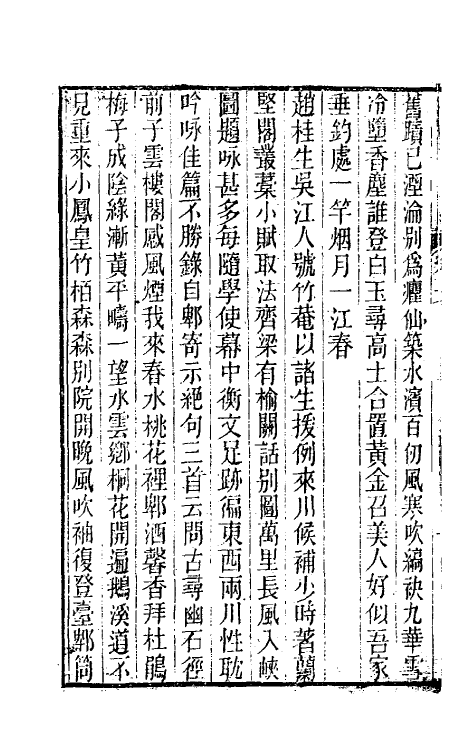 舊蹟已湮淪別爲癯仙築水濱百仞風寒吹縞袂九華雲
冷墮香塵誰登白玉尋高士合置黃金召美人好似吾家
垂釣處一竿烟月一江春
趙桂生吳江人號竹菴以諸生援例來川候補少時著蘭
堅閣叢藁小賦取法齊梁有榆關話別圖萬里長風入峽
圖題咏甚多每隨學使幕中衡文足跡徧東西兩川性耽
吟咏佳篇不勝錄自郫寄示絕句三首云問古尋幽石徑
前子雲樓閣感風煙我來春水桃花裡郫酒馨香拜杜鵑
梅子成陰綠漸黃平疇一望水雲鄉桐花開遍鵝溪道不
見重來小鳳皇竹栢森森別院開晚風吹袖復登臺郫筒